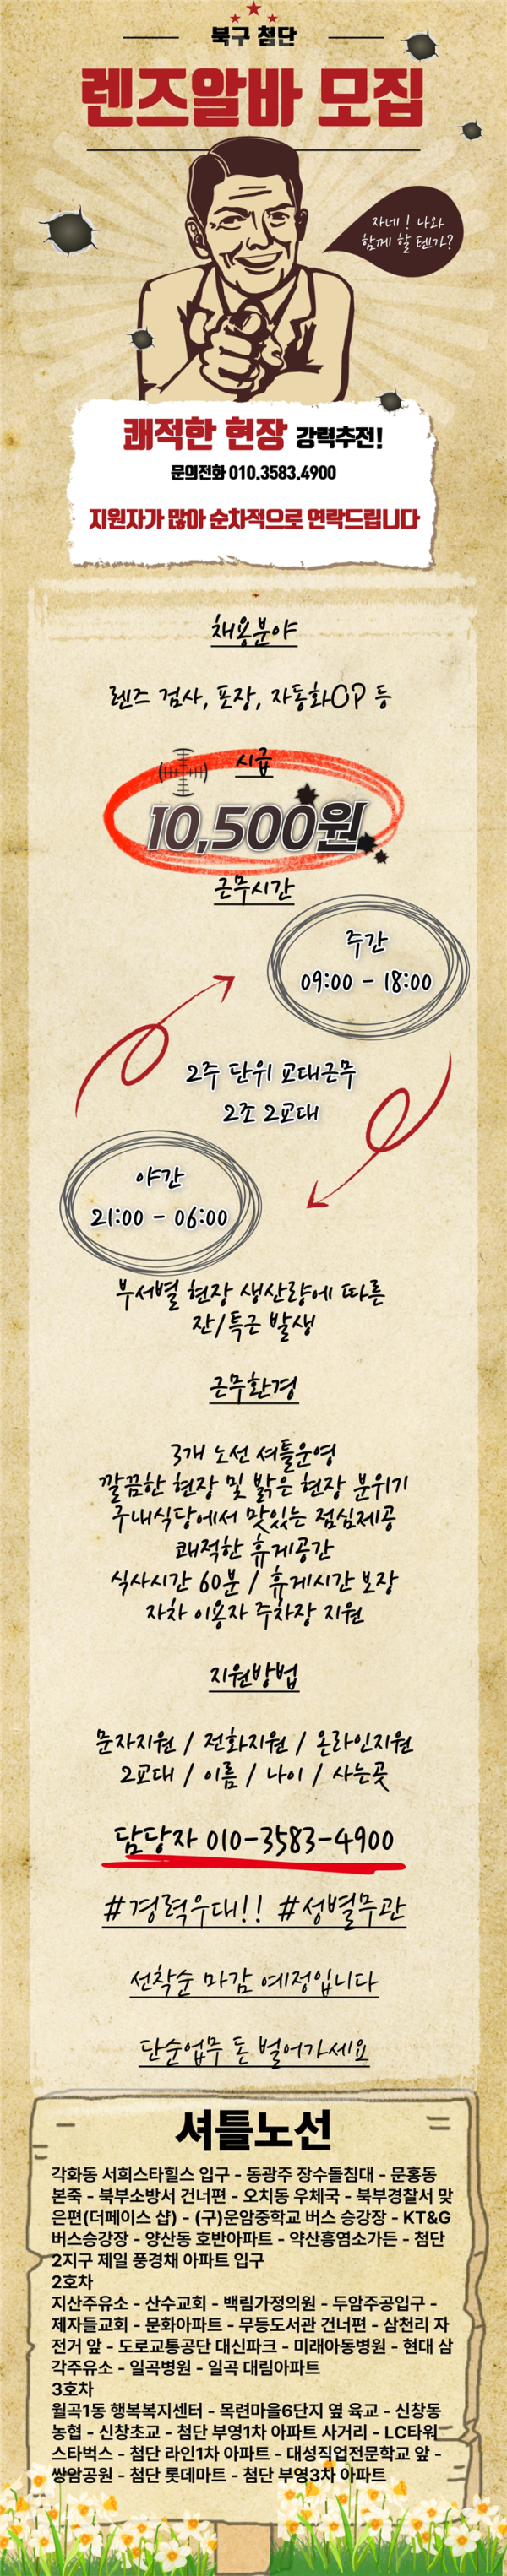 북구 첨단
렌즈알바 모집
자네! 나와
함께 할 텐가?
쾌적한 현장 강력추전!
문의전화 010.3583.4900
지원자가 많아 순차적으로 연락드립니다
채용분야
렌즈 검사, 포장, 자동화OP 등
시급
10,500원
근무시간
주간
09:00 - 18:00
2주 단위 교대근무
2조 2교대
야간
21:00 - 06:00
부서별 현장 생산량에 따른
잔/특근 발생
근무환경
3개 노선 셔틀운영
깔끔한 현장 및 밝은 현장 분위기
구내식당에서 맛있는 점심제공
쾌적한 휴게공간
식사시간 60분 / 휴게시간 보장
자차 이용자 주차장 지원
지원방법
문자지원 / 전화지원 / 온라인지원
2교대 / 이름 / 나이 / 사는곳
담당자 010-3583-4900
#경력우대!! #성별무관
선착순 마감 예정입니다
단순업무 돈 벌어가세요
셔틀노선
각화동 서희스타힐스 입구 - 동광주 장수돌침대 - 문흥동
본죽 - 북부소방서 건너편 - 오치동 우체국 - 북부경찰서 맞
은편(더페이스 샵) - (구)운암중학교 버스 승강장 - KT&G
버스승강장 - 양산동 호반아파트 - 약산흥염소가든 - 첨단
2지구 제일 풍경채 아파트 입구
2호차
지산주유소 - 산수교회 - 백림가정의원 - 두암주공입구 -
제자들교회 - 문화아파트 - 무등도서관 건너편 - 삼천리 자
전거 앞 - 도로교통공단 대신파크 - 미래아동병원 - 현대 삼
각주유소 - 일곡병원 - 일곡 대림아파트
3호차
월곡1동 행복복지센터 - 목련마을6단지 옆 육교 - 신창동
농협 - 신창초교 - 첨단 부영1차 아파트 사거리 - LC타워
스타벅스 - 첨단 라인1차 아파트 - 대성직업전문학교 앞 -
쌍암공원 - 첨단 롯데마트 - 첨단 부영3차 아파트